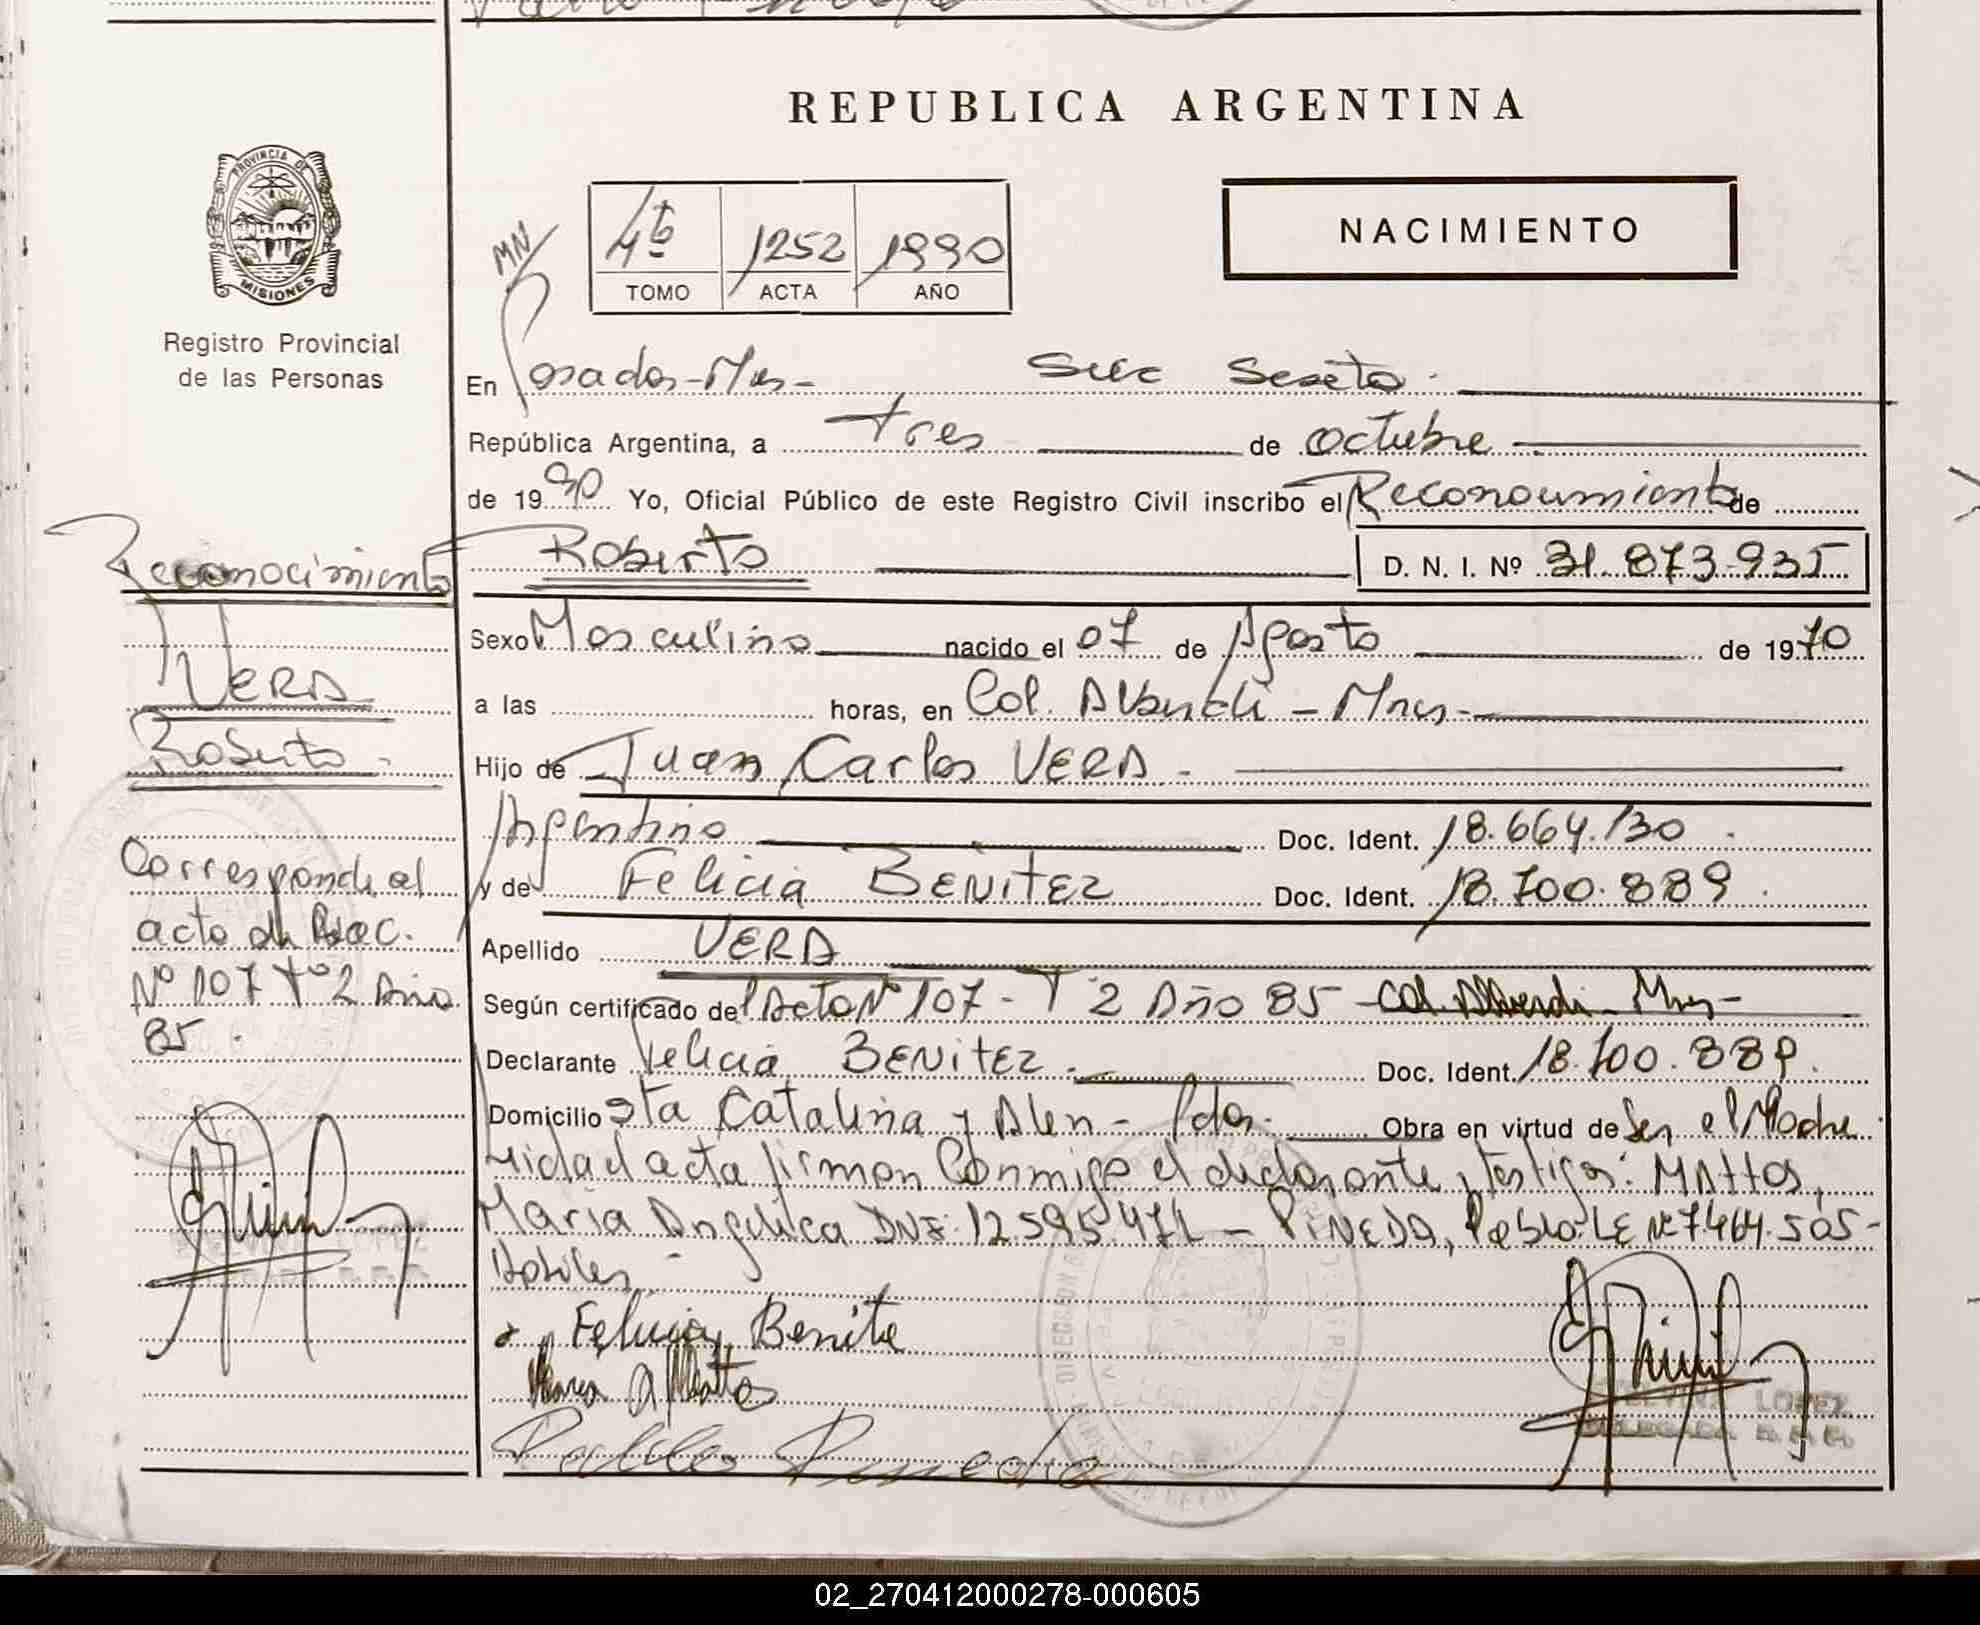 REPUBLICA ARGENTINA
PROVINCIA DE
MISIONES
Registro Provincial
de las Personas
4to 1252 1990
TOMO ACTA AÑO
NACIMIENTO
En Posadas-Mnes- Secc Sexta.
República Argentina, a tres de octubre
de 1990 Yo, Oficial Público de este Registro Civil inscribo el Reconocimiento de
Roberto D. N. I. Nº 31.873.935
Sexo Masculino nacido el 07 de Agosto de 1970
a las horas, en Col. Alberdi - Mnes-
Hijo de Juan Carlos VERA -
Argentino Doc. Ident. 18.664.130.
y de Felicia BENITEZ Doc. Ident. 18.700.889.
Apellido VERA
Según certificado del Acta Nº 107- Tº 2 Año 85 - Col. Alberdi - Mnes-
Declarante Felicia BENITEZ. Doc. Ident. 18.700.889.
Domicilio Sta Catalina y Alen - Pdas. Obra en virtud de Ser el Madre
Leida el acta firman Conmigo el declarante y testigos: MATTOS,
Maria Angelica DNI: 12.595.471 - PINEDA, Pablo. LE Nº 7.464.505-
Habiles -
Felicia Benite
Maria A Mattos
Pablo Pineda
LOPEZ
DELEGADA R.P.P.
Reconocimiento
VERA
Roberto -
Corresponde al
acta de Rec.
Nº 107 Tº 2 Año
85.
02_270412000278-000605